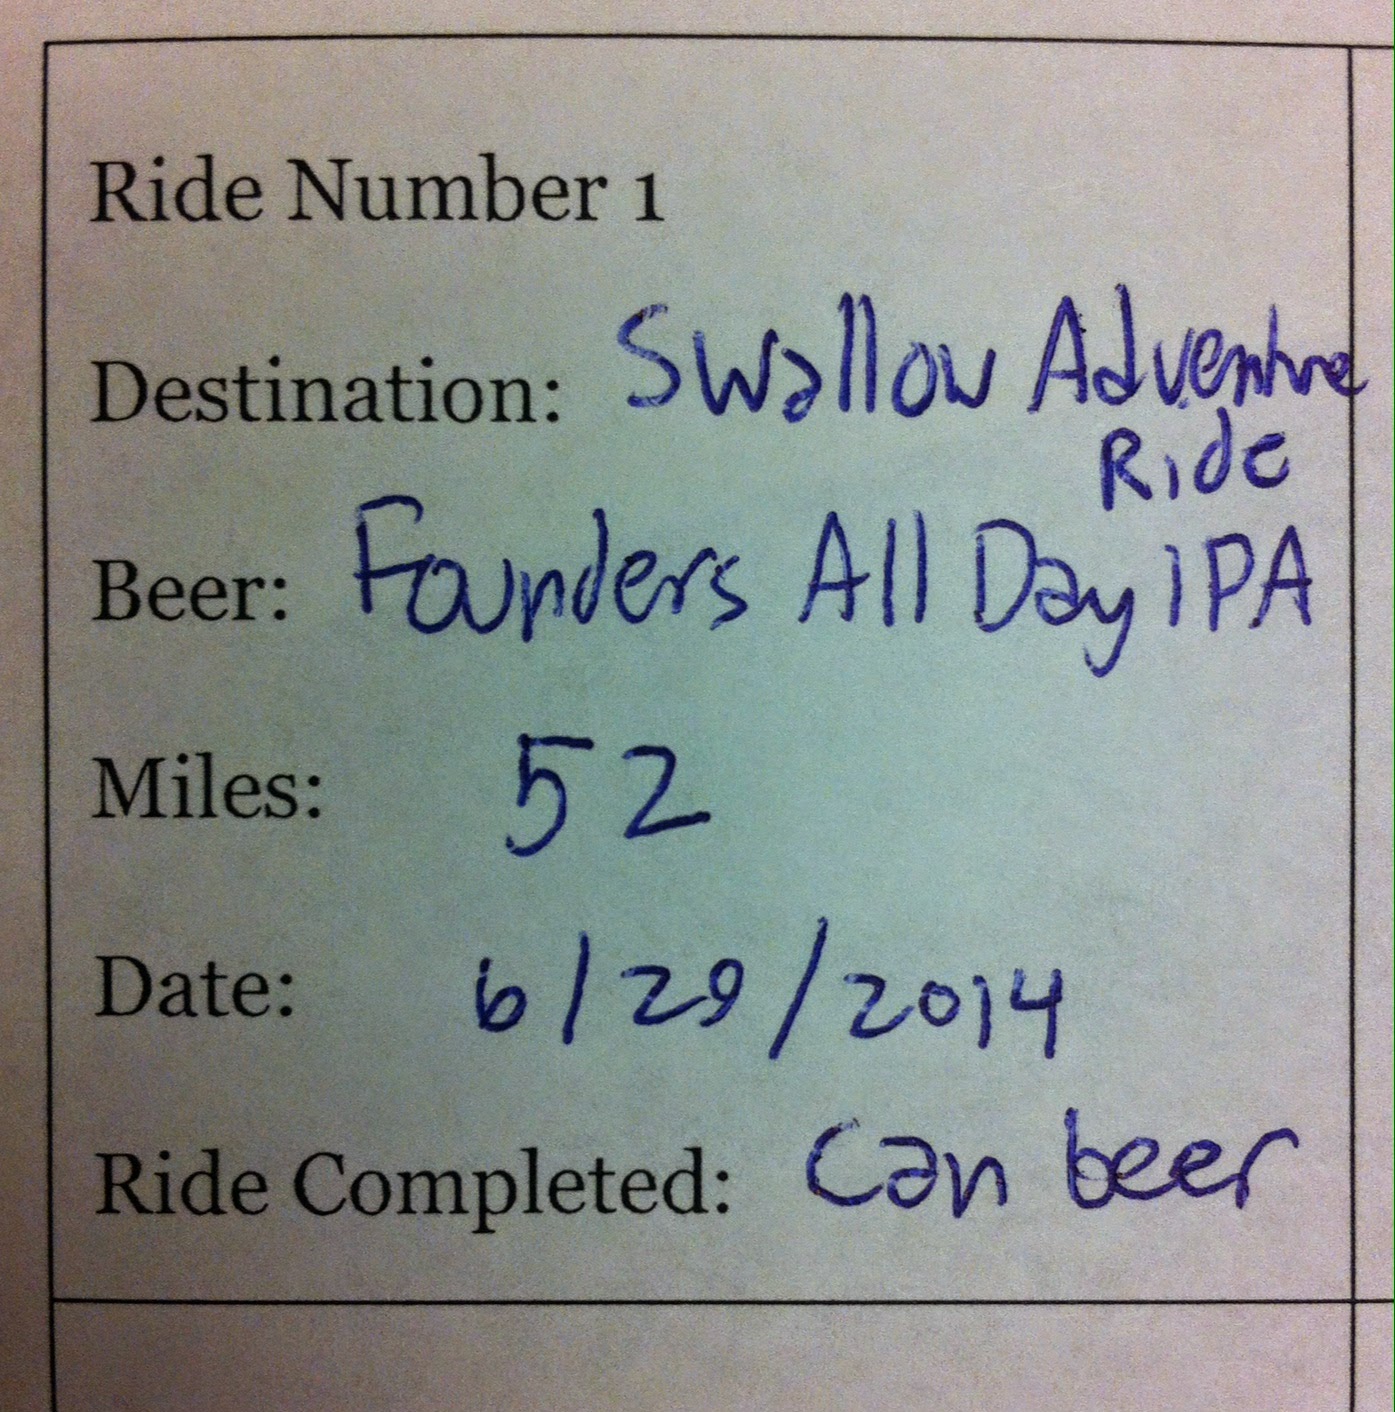 Ride Number 1
Destination: Swallow Adventure
Ride
Beer: Founders All Day IPA
Miles: 52
Date: 6/29/2014
Ride Completed: Can beer